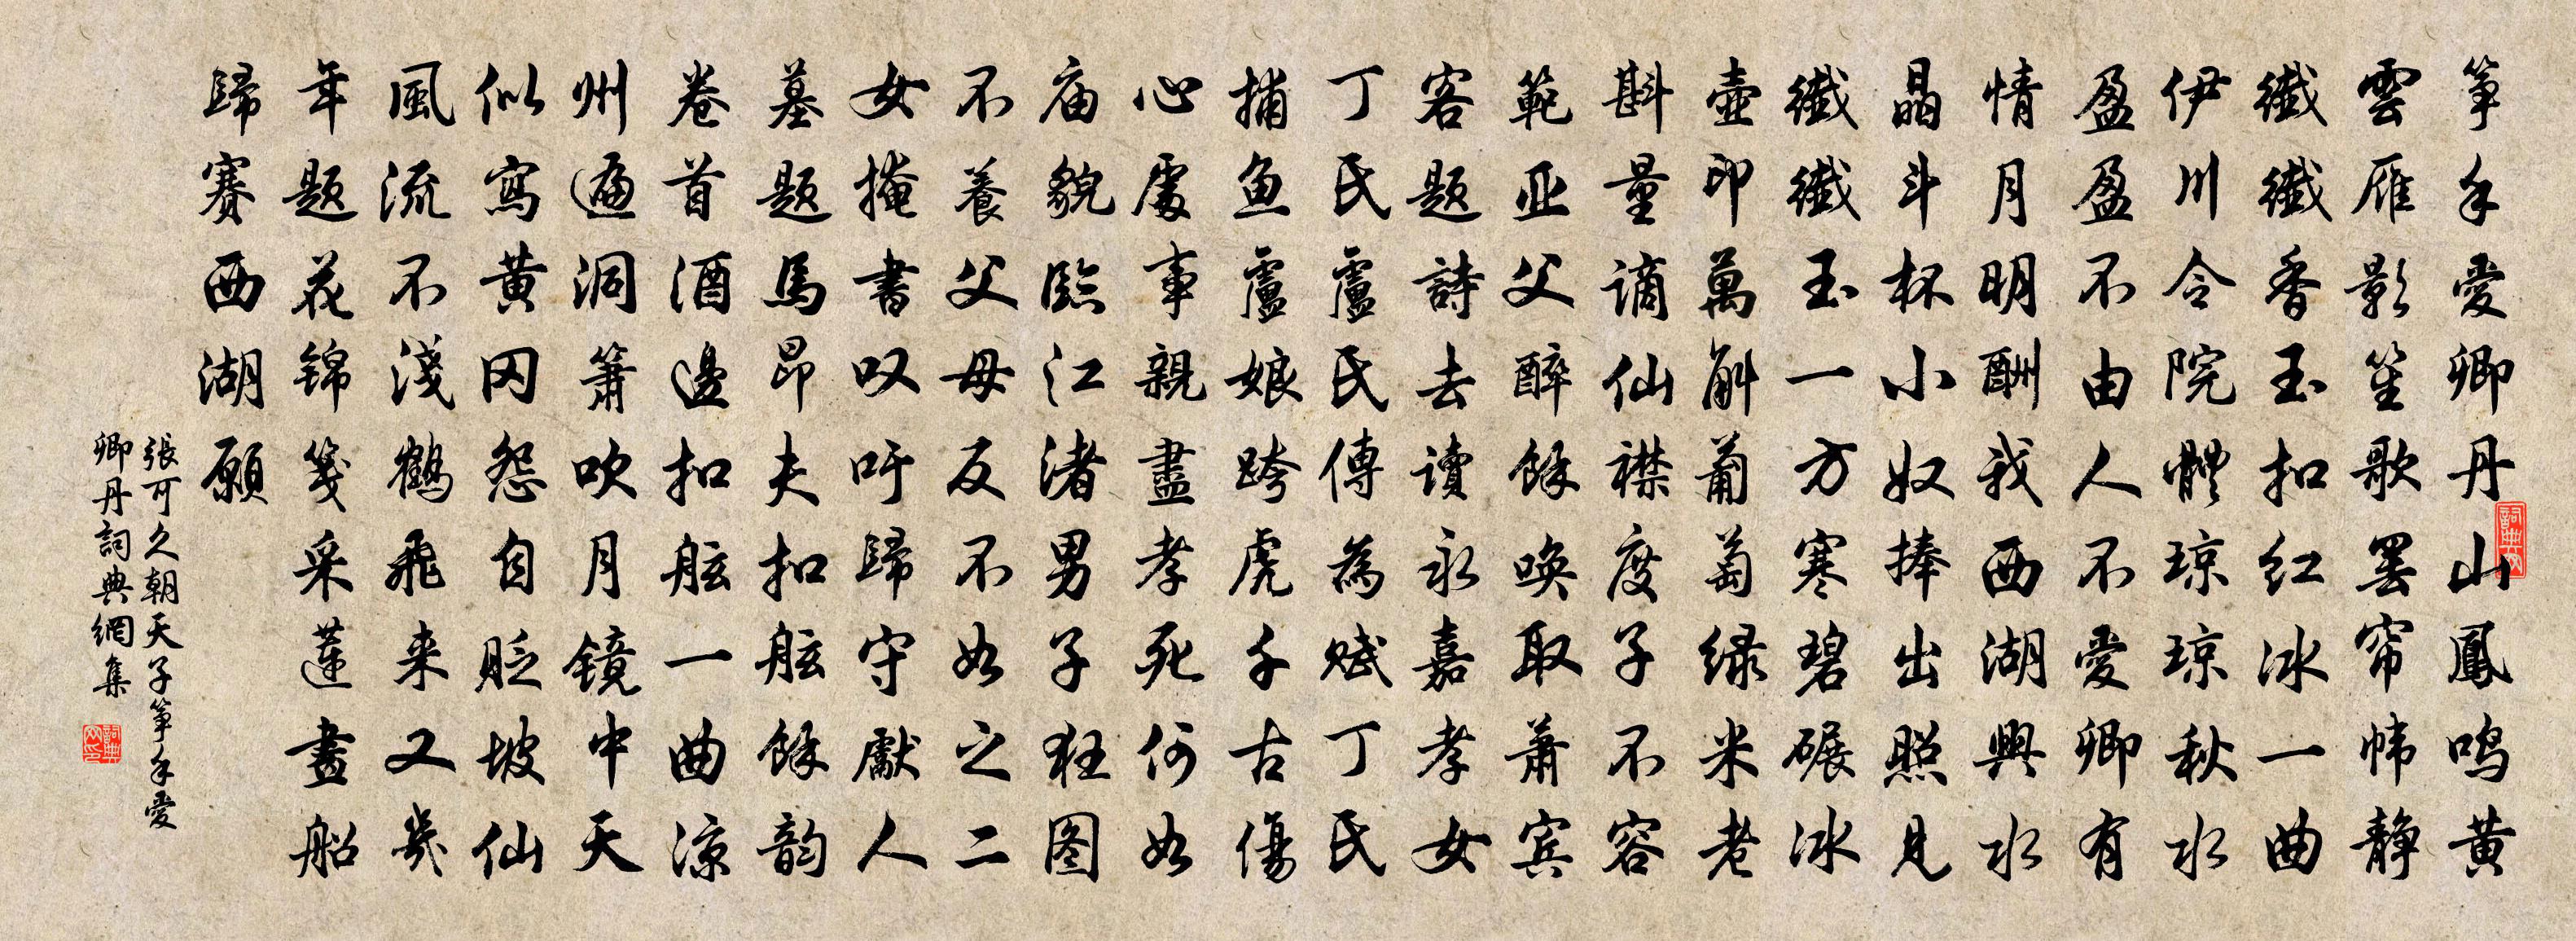 筝手愛卿丹山鳳鸣黄
雲雁影笙歌罢帘帏静
纖纖香玉扣红冰一曲
伊川令院體琼琼秋水
盈盈不由人不愛卿有
情月明酬我西湖興水
晶斗杯小奴捧出照见
纖纖玉一方寒碧碾冰
壶印萬斛葡萄绿米老
斟量谪仙襟度子不容
範亚父醉餘唤取萧宾
客题詩去读永嘉孝女
丁氏盧氏傳為赋丁氏
捕鱼盧娘跨虎千古傷
心處事親盡孝死何如
庙貌臨江渚男子狂图
不養父母反不如之二
女掩書叹吁歸守獻人
墓题馬昂夫扣舷餘韵
卷首酒邊扣舷一曲凉
州遍洞箫吹月镜中天
似寫黄冈怨自貶坡仙
風流不淺鶴飛来又幾
年题花锦箋采蓮畫船
歸賽西湖願
張可久朝天子筝手愛
卿丹詞典網集